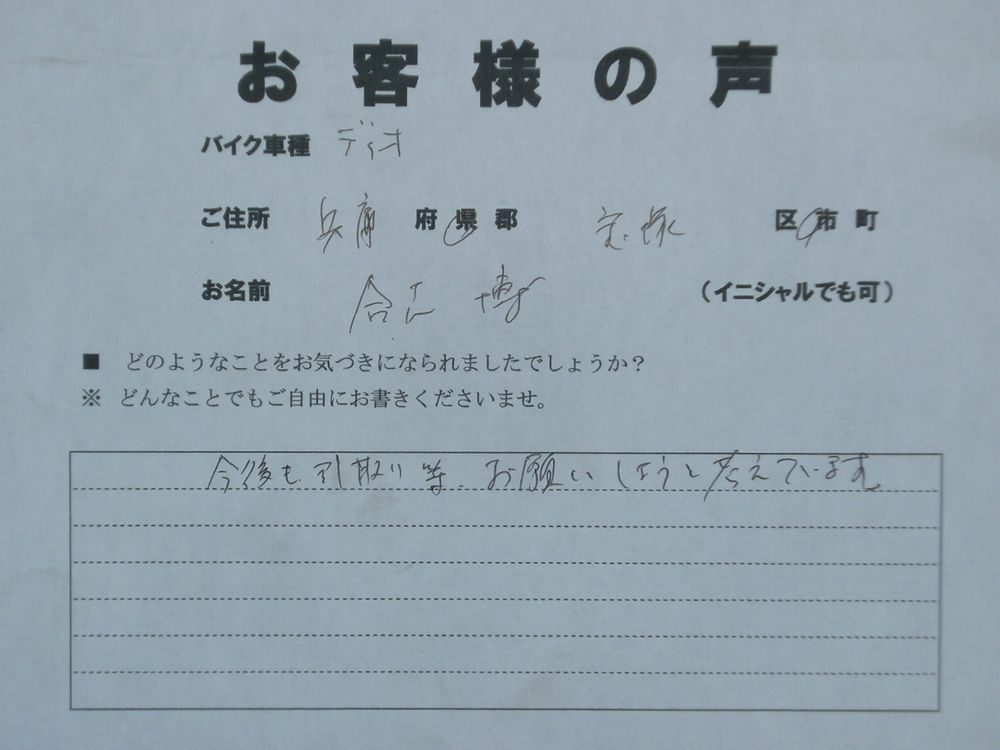 お客様の声
バイク車種 ディオ
ご住所 兵庫 府県郡 宝塚 区市町
お名前 博 (イニシャルでも可)
■ どのようなことをお気づきになられましたでしょうか?
※ どんなことでもご自由にお書きくださいませ。
今後も引取り等、お願いしようと考えています